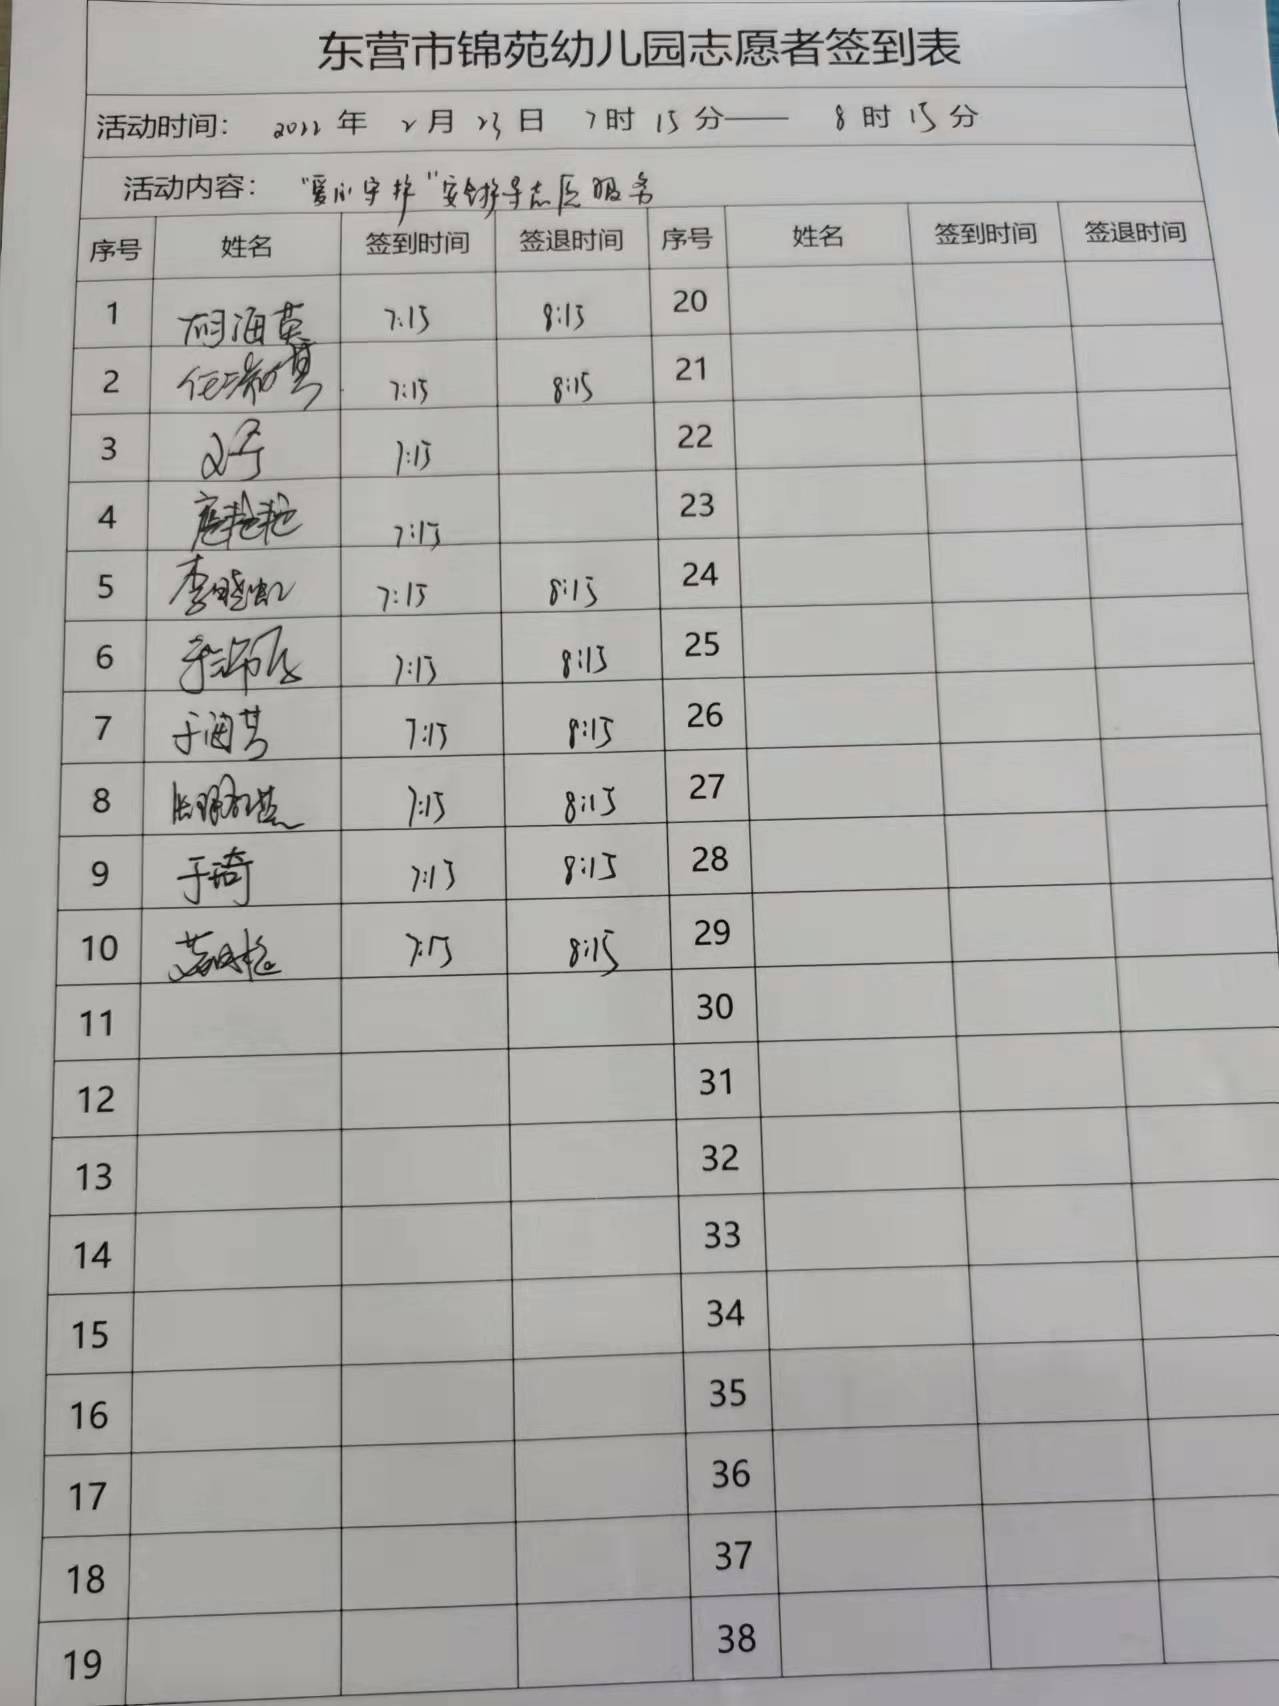 东营市锦苑幼儿园志愿者签到表
活动时间: 2022 年 2 月 23 日 7 时 15 分—— 8 时 15 分
活动内容: "爱心守护"安全护导志愿服务
序号 姓名 签到时间 签退时间 序号 姓名 签到时间 签退时间
1 胡海英 7:15 8:15 20
2 任瑞英 7:15 8:15 21
3 7:15 22
4 唐艳艳 7:15 23
5 李晓虹 7:15 8:15 24
6 7:15 8:15 25
7 于海芹 7:15 8:15 26
8 7:15 8:15 27
9 于琦 7:15 8:15 28
10 7:15 8:15 29
11 30
12 31
13 32
14 33
15 34
16 35
17 36
18 37
19 38